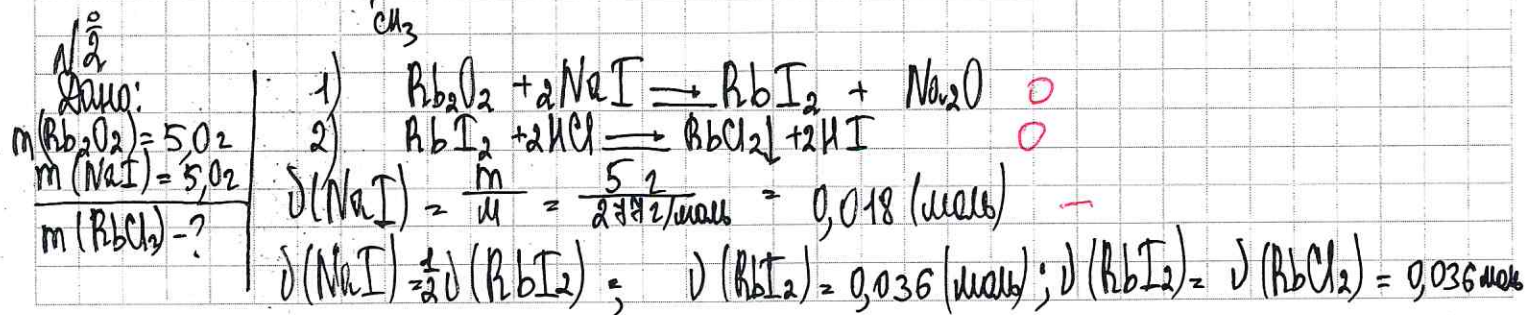 CH₃
№2
Дано:
m(Rb₂O₂) = 5,0г
m(NaI) = 5,0г
m(RbCl₂) - ?
1) Rb₂O₂ + 2NaI = RbI₂ + Na₂O 0
2) RbI₂ + 2HCl = RbCl₂↓ + 2HI 0
ν(NaI) = m/M = 5 г/277 г/моль = 0,018 (моль) –
ν(NaI) = 1/2 ν(RbI₂); ν(RbI₂) = 0,036 (моль); ν(RbI₂) = ν(RbCl₂) = 0,036 моль